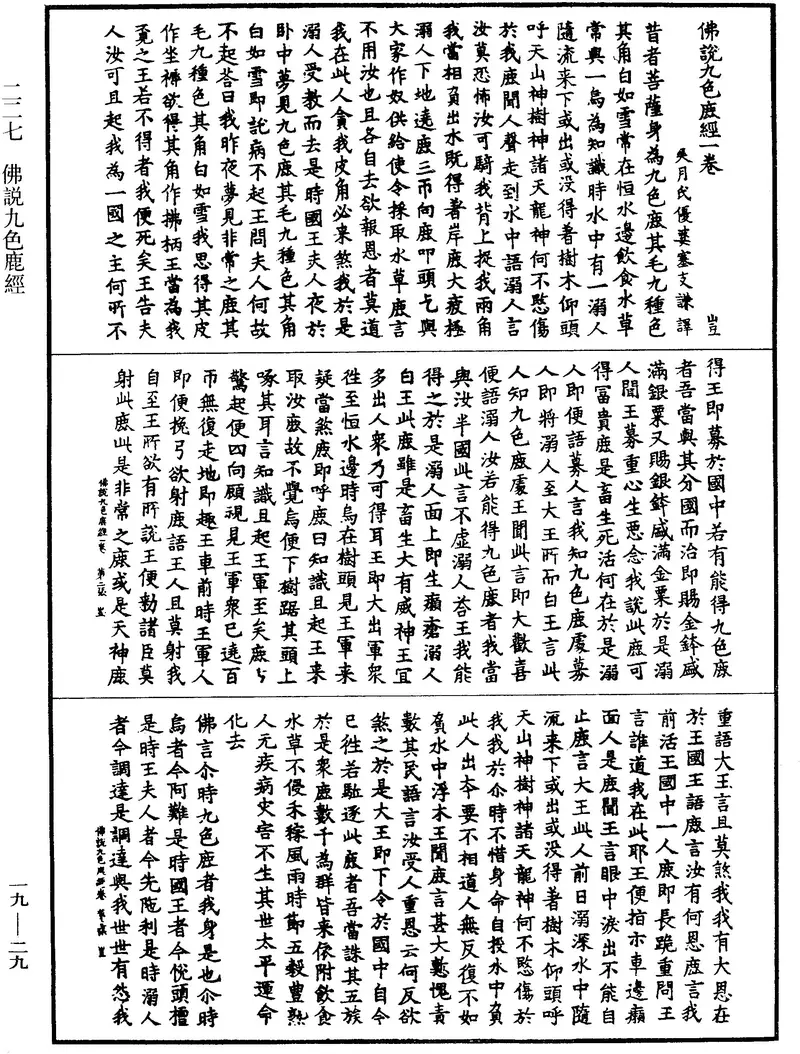 二二七　佛說九色鹿經
一九—二九
佛說九色鹿經一卷
吳月氏優婆塞支謙譯　豈
昔者菩薩身為九色鹿其毛九種色
其角白如雪常在恒水邊飲食水草
常與一烏為知識時水中有一溺人
隨流来下或出或没得著樹木仰頭
呼天山神樹神諸天龍神何不愍傷
於我鹿聞人聲走到水中語溺人言
汝莫恐怖汝可騎我背上捉我兩角
我當相負出水既得著岸鹿大疲極
溺人下地遶鹿三帀向鹿叩頭乞與
大家作奴供給使令採取水草鹿言
不用汝也且各自去欲報恩者莫道
我在此人貪我皮角必来煞我於是
溺人受教而去是時國王夫人夜於
卧中夢見九色鹿其毛九種色其角
白如雪即訛病不起王問夫人何故
不起荅曰我昨夜夢見非常之鹿其
毛九種色其角白如雪我思得其皮
作坐褥欲得其角作拂柄王當為我
覓之王若不得者我便死矣王告夫
人汝可且起我為一國之主何所不
得王即募於國中若有能得九色鹿
者吾當與其分國而治即賜金鉢盛
滿銀粟又賜銀鉢盛滿金粟於是溺
人聞王募重心生惡念我說此鹿可
得冨貴鹿是畜生死活何在於是溺
人即便語募人言我知九色鹿處募
人即將溺人至大王所而白王言此
人知九色鹿處王聞此言即大歡喜
便語溺人汝若能得九色鹿者我當
與汝半國此言不虛溺人荅王我能
得之於是溺人面上即生癩瘡溺人
白王此鹿雖是畜生大有威神王宜
多出人衆乃可得耳王即大出軍衆
徃至恒水邊時烏在樹頭見王軍来
疑當煞鹿即呼鹿曰知識且起王来
取汝鹿故不覺烏便下樹踞其頭上
啄其耳言知識且起王軍至矣鹿方
驚起便四向顧視見王軍衆已遶百
帀無復走地即趣王車前時王軍人
即便挽弓欲射鹿語王人且莫射我
自至王所欲有所說王便勑諸臣莫
射此鹿此是非常之鹿或是天神鹿
佛說九色鹿經一卷　第二張　豈
重語大王言且莫煞我我有大恩在
於王國王語鹿言汝有何恩鹿言我
前活王國中一人鹿即長跪重問王
言誰道我在此耶王便指示車邊癩
面人是鹿聞王言眼中淚出不能自
止鹿言大王此人前日溺深水中隨
流来下或出或没得著樹木仰頭呼
天山神樹神諸天龍神何不愍傷於
我我於尒時不惜身命自投水中負
此人出本要不相道人無反復不如
負水中浮木王聞鹿言甚大慙愧責
數其民語言汝受人重恩云何反欲
煞之於是大王即下令於國中自今
已徃若驅逐此鹿者吾當誅其五族
於是衆鹿數千為群皆来依附飲食
水草不侵禾稼風雨時節五穀豊熟
人无疾病灾害不生其世太平運命
化去
佛言尒時九色鹿者我身是也尒時
烏者今阿難是時國王者今恱頭檀
是時王夫人者今先陁利是時溺人
者今調達是調達與我世世有怨我